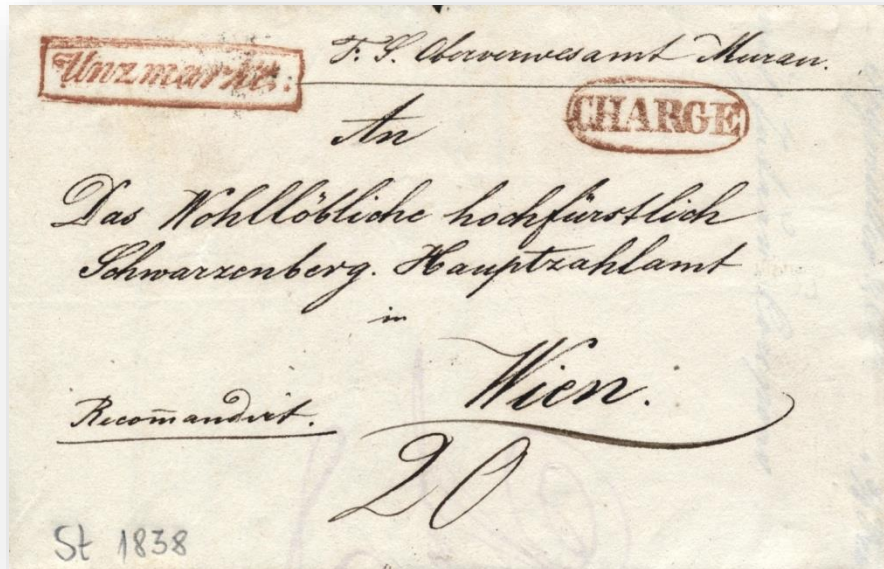 Unzmarkt.
F. S. Oberverwesamt Murau.
CHARGE
An
Das Wohllöbliche hochfürstlich
Schwarzenberg. Hauptzahlamt
in
Wien.
Recom̄andirt.
20
St 1838